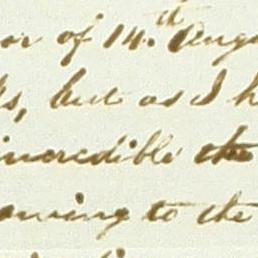 or of 14.th Augu
ks, but as I h
incredible the
owing to the